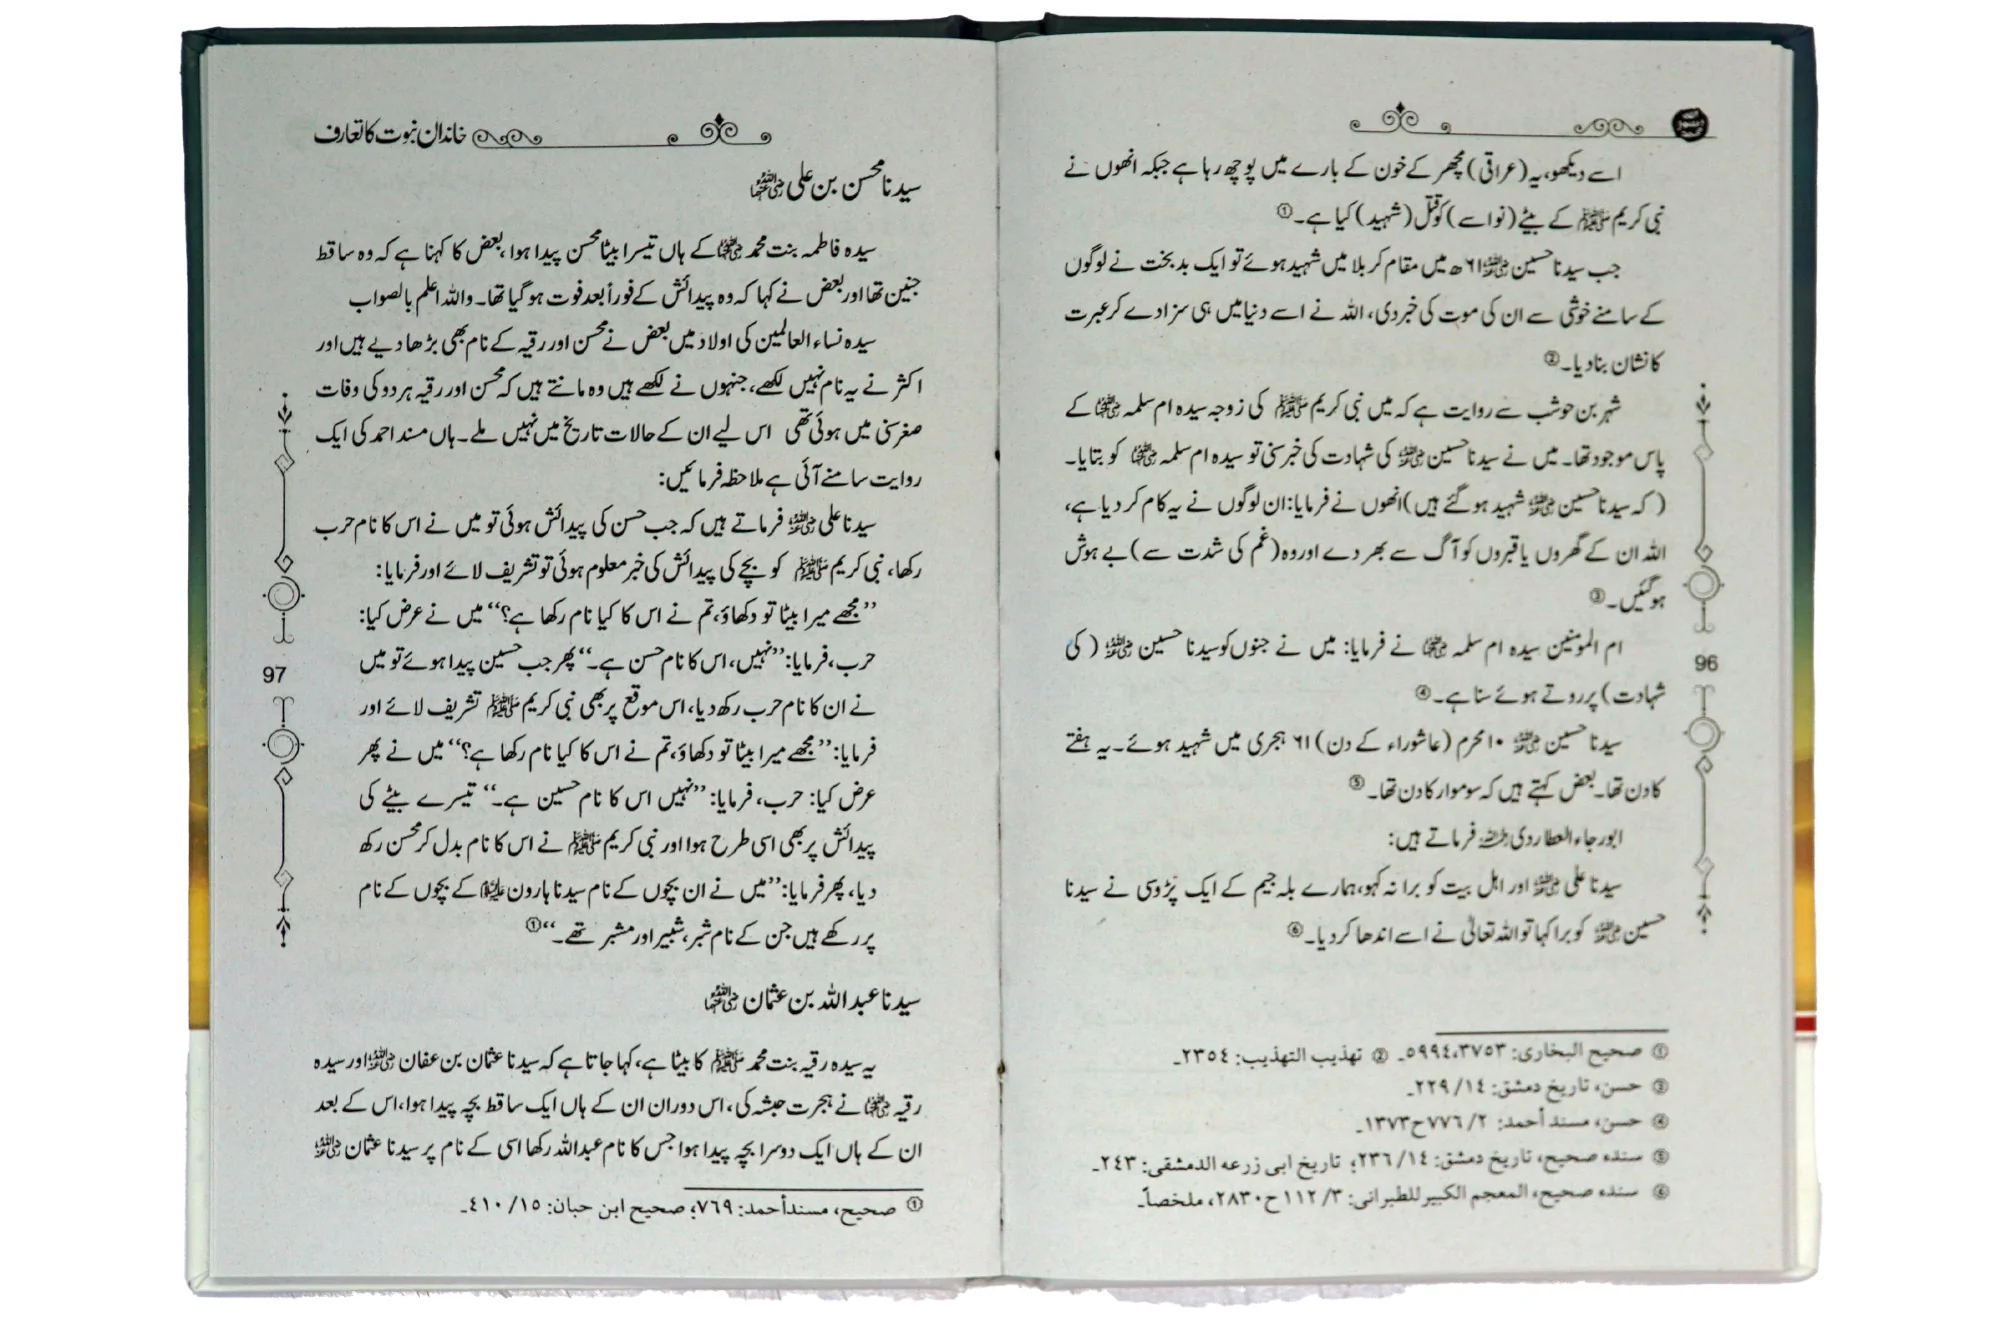 اسے دیکھو، یہ (عراقی) مچھر کے خون کے بارے میں پوچھ رہا ہے جبکہ انھوں نے
نبی کریم ﷺ کے بیٹے (نواسے) کو قتل (شہید) کیا ہے۔ ①
جب سیدنا حسین رضی اللہ عنہ ٦١ھ میں مقام کربلا میں شہید ہوئے تو ایک بدبخت نے لوگوں
کے سامنے خوشی سے ان کی موت کی خبر دی، اللہ نے اسے دنیا میں ہی سزا دے کر عبرت
کا نشان بنا دیا۔ ②
شہر بن حوشب سے روایت ہے کہ میں نبی کریم ﷺ کی زوجہ سیدہ ام سلمہ رضی اللہ عنہا کے
پاس موجود تھا۔ میں نے سیدنا حسین رضی اللہ عنہ کی شہادت کی خبر سنی تو سیدہ ام سلمہ رضی اللہ عنہا کو بتایا۔
(کہ سیدنا حسین رضی اللہ عنہ شہید ہو گئے ہیں) انھوں نے فرمایا: ان لوگوں نے یہ کام کر دیا ہے،
اللہ ان کے گھروں یا قبروں کو آگ سے بھر دے اور وہ (غم کی شدت سے) بے ہوش
ہو گئیں۔ ③
ام المومنین سیدہ ام سلمہ رضی اللہ عنہا نے فرمایا: میں نے جنوں کو سیدنا حسین رضی اللہ عنہ (کی
شہادت) پر روتے ہوئے سنا ہے۔ ④
سیدنا حسین رضی اللہ عنہ ١٠ محرم (عاشوراء کے دن) ٦١ ہجری میں شہید ہوئے۔ یہ ہفتے
کا دن تھا۔ بعض کہتے ہیں کہ سوموار کا دن تھا۔ ⑤
ابو رجاء العطاردی رحمہ اللہ فرماتے ہیں:
سیدنا علی رضی اللہ عنہ اور اہل بیت کو برا نہ کہو، ہمارے بلہجیم کے ایک پڑوسی نے سیدنا
حسین رضی اللہ عنہ کو برا کہا تو اللہ تعالیٰ نے اسے اندھا کر دیا۔ ⑥
96
① صحیح البخاری: ٣٧٥٣، ٥٩٩٤۔ ② تهذیب التهذیب: ٢٣٥٤۔
③ حسن، تاریخ دمشق: ١٤/ ٢٢٩۔
④ حسن، مسند أحمد: ٢/ ٧٧٦ ح ١٣٧٣۔
⑤ سنده صحیح، تاریخ دمشق: ١٤/ ٢٣٦؛ تاریخ ابی زرعه الدمشقی: ٢٤٣۔
⑥ سنده صحیح، المعجم الکبیر للطبرانی: ٣/ ١١٢ ح ٢٨٣٠، ملخصاً۔
خاندان نبوت کا تعارف
سیدنا محسن بن علی رضی اللہ عنہما
سیدہ فاطمہ بنت محمد رضی اللہ عنہا کے ہاں تیسرا بیٹا محسن پیدا ہوا، بعض کا کہنا ہے کہ وہ ساقط
جنین تھا اور بعض نے کہا کہ وہ پیدائش کے فوراً بعد فوت ہو گیا تھا۔ واللہ اعلم بالصواب
سیدہ نساء العالمین کی اولاد میں بعض نے محسن اور رقیہ کے نام بھی بڑھا دیے ہیں اور
اکثر نے یہ نام نہیں لکھے، جنہوں نے لکھے ہیں وہ مانتے ہیں کہ محسن اور رقیہ ہر دو کی وفات
صغر سنی میں ہوئی تھی اس لیے ان کے حالات تاریخ میں نہیں ملے۔ ہاں مسند احمد کی ایک
روایت سامنے آئی ہے ملاحظہ فرمائیں:
سیدنا علی رضی اللہ عنہ فرماتے ہیں کہ جب حسن کی پیدائش ہوئی تو میں نے اس کا نام حرب
رکھا، نبی کریم ﷺ کو بچے کی پیدائش کی خبر معلوم ہوئی تو تشریف لائے اور فرمایا:
”مجھے میرا بیٹا تو دکھاؤ، تم نے اس کا کیا نام رکھا ہے؟“ میں نے عرض کیا:
حرب، فرمایا: ”نہیں، اس کا نام حسن ہے۔“ پھر جب حسین پیدا ہوئے تو میں
نے ان کا نام حرب رکھ دیا، اس موقع پر بھی نبی کریم ﷺ تشریف لائے اور
فرمایا: ”مجھے میرا بیٹا تو دکھاؤ، تم نے اس کا کیا نام رکھا ہے؟“ میں نے پھر
عرض کیا: حرب، فرمایا: ”نہیں اس کا نام حسین ہے۔“ تیسرے بیٹے کی
پیدائش پر بھی اسی طرح ہوا اور نبی کریم ﷺ نے اس کا نام بدل کر محسن رکھ
دیا، پھر فرمایا: ”میں نے ان بچوں کے نام سیدنا ہارون علیہ السلام کے بچوں کے نام
پر رکھے ہیں جن کے نام شبر، شبیر اور مشبر تھے۔“ ①
سیدنا عبد اللہ بن عثمان رضی اللہ عنہما
یہ سیدہ رقیہ بنت محمد ﷺ کا بیٹا ہے، کہا جاتا ہے کہ سیدنا عثمان بن عفان رضی اللہ عنہ اور سیدہ
رقیہ رضی اللہ عنہا نے ہجرت حبشہ کی، اس دوران ان کے ہاں ایک ساقط بچہ پیدا ہوا، اس کے بعد
ان کے ہاں ایک دوسرا بچہ پیدا ہوا جس کا نام عبداللہ رکھا اسی کے نام پر سیدنا عثمان رضی اللہ عنہ
97
① صحیح، مسند أحمد: ٧٦٩؛ صحیح ابن حبان: ١٥/ ٤١٠۔